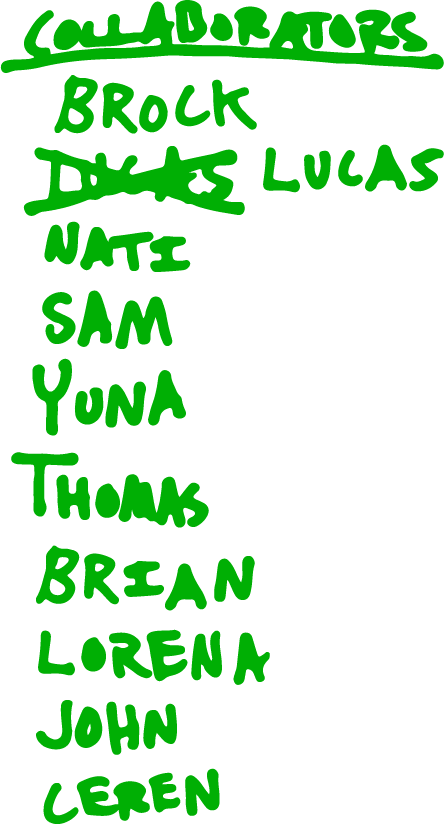 COLLABORATORS
BROCK
LUCAS
NATI
SAM
YUNA
THOMAS
BRIAN
LORENA
JOHN
CEREN